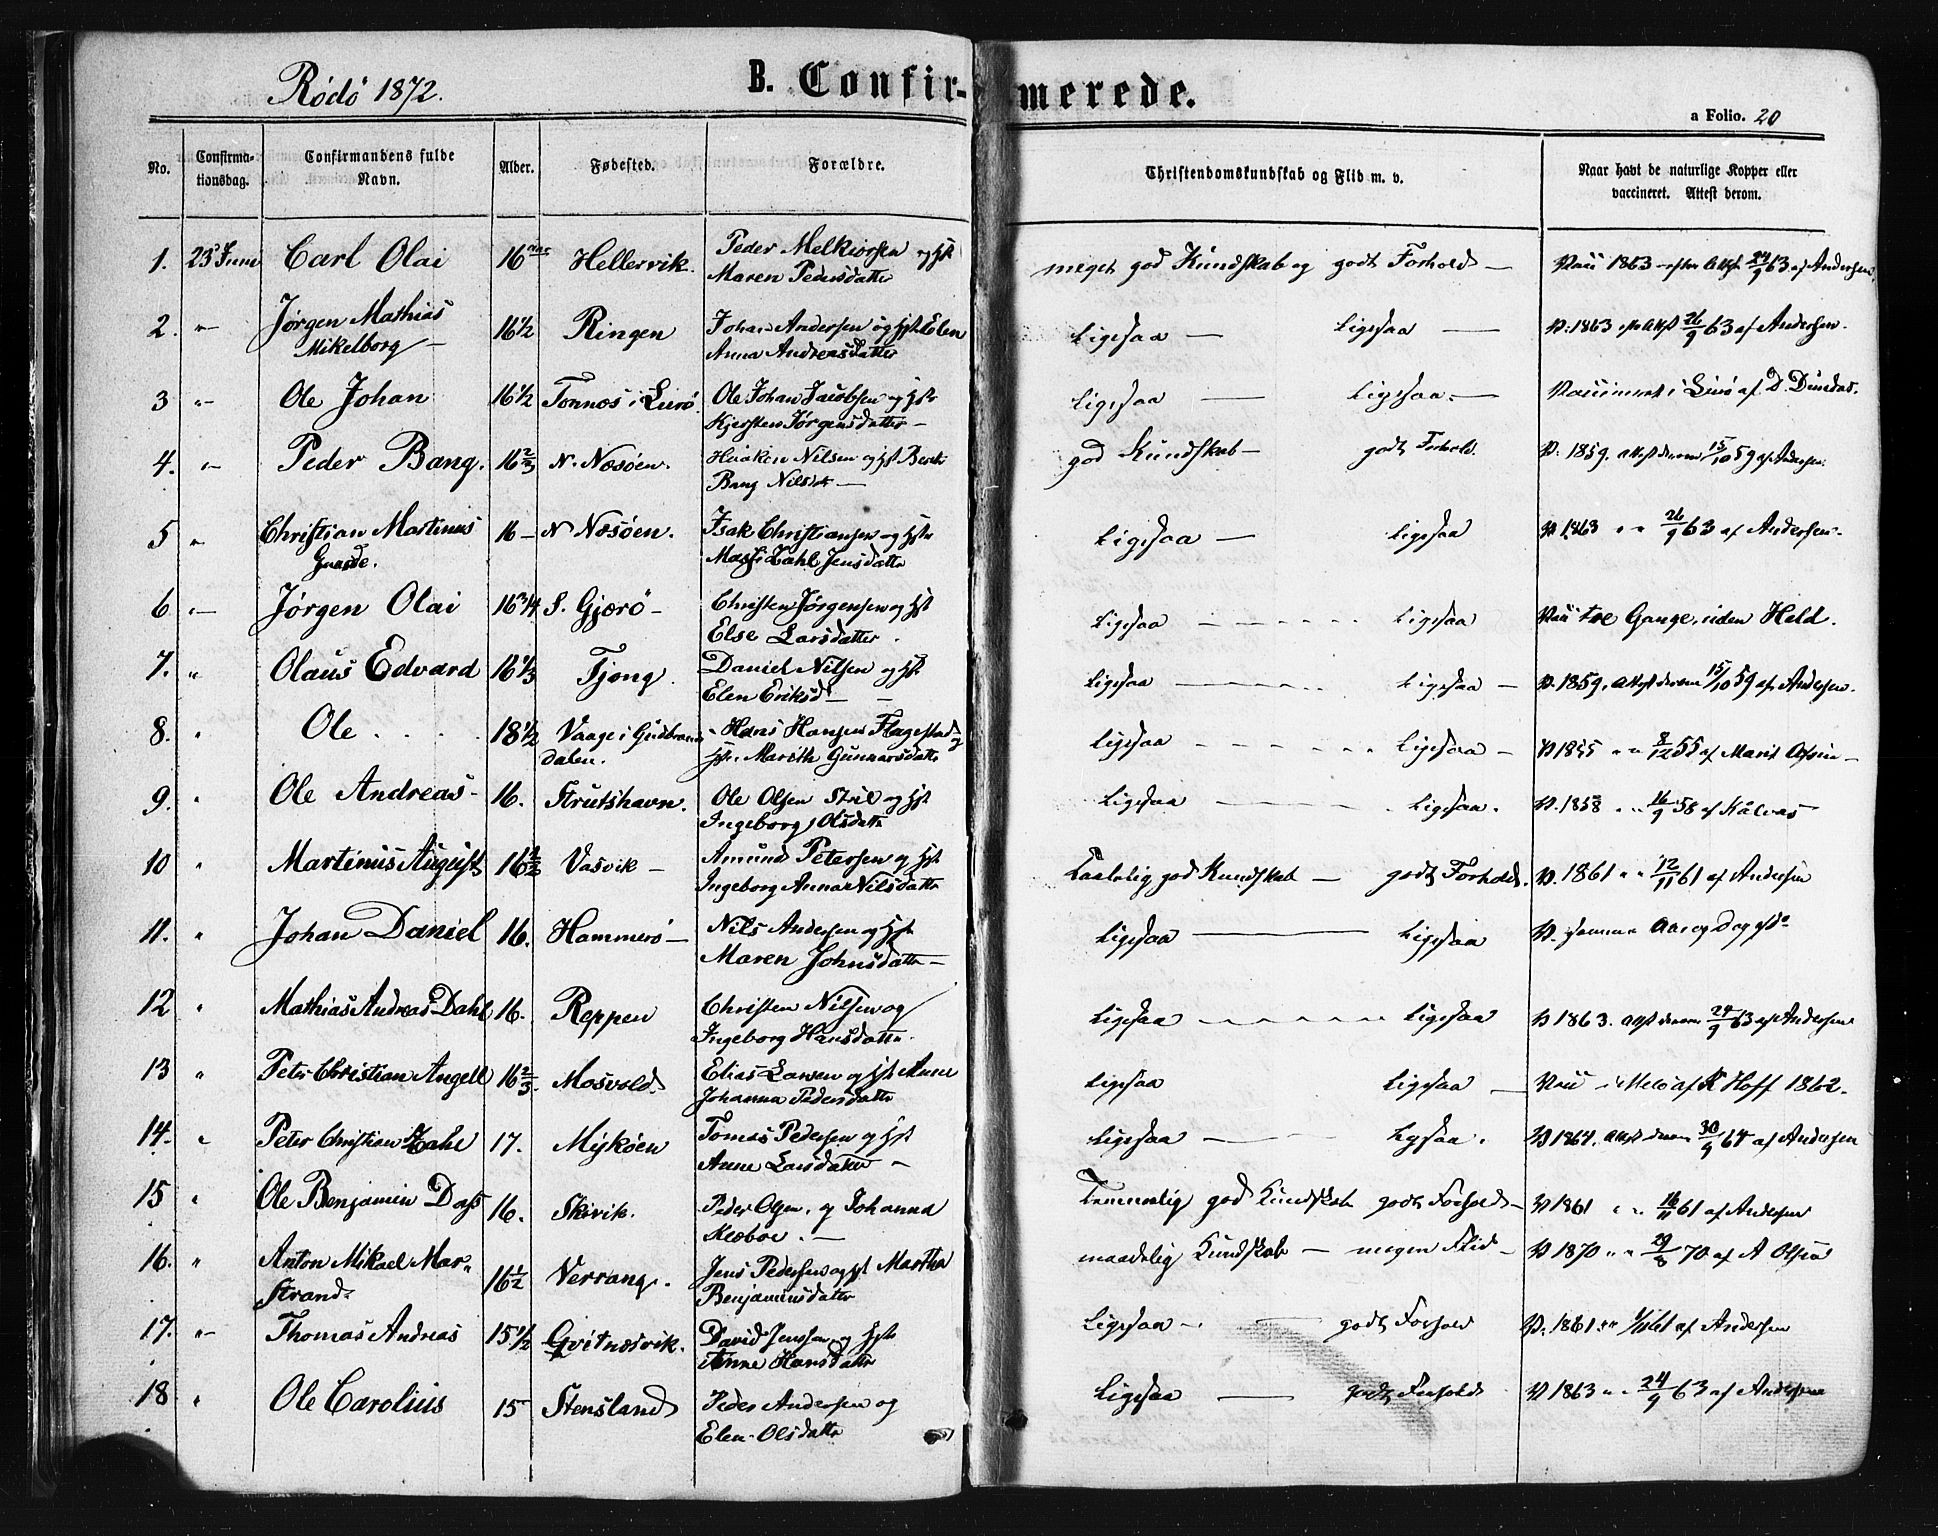 Rødø 1872.
B. Confirmerede.
a Folio. 20
No. Confirmationsdag. Confirmandens fulde Navn. Alder. Fødested. Forældre. Christendomskundskab og Flid m. v. Naar havt de naturlige Kopper eller vaccineret. Attest derom.
1. 23 Juni Carl Olai 16 aar Hellervik. Peder Melkiorsen og Hst meget god Kundskab og godt Forhold — Vacc 1863 efter Attst 24/9 63 af Andersen
Maren Pedersdatter
2. "— Jørgen Mathias 16 1/2 Ringen Johan Andersen og Hst Elen Ligesaa — Ligesaa — V. 1863 Attst 26/9 63 af Andersen.
Mikelborg — Anna Andreasdatter
3 "— Ole Johan 16 1/2 Tonnes i Lurø. Ole Johan Jacobsen og Hst Ligesaa — Ligesaa. — Vaccineret i Lurø af D. Dundas.
Kjersten Jørgensdatter —
4. "— Peder Bang. 16 2/3 N. Nesøen. Haaken Nilsen og Hst Berit god Kundskab — godt Forhold. V. 1859. Attst derom 15/10 59 af Andersen.
Bang Nilsdt —
5 " Christian Martinus 16 — N Nesøen. Isak Christiansen og Hst Ligesaa — Ligesaa V. 1863 " " 26/9 63 af Andersen.
Dahl Jensdatter
6 "— Jørgen Olai 16 3/4 S. Gjærø — Christen Jørgensen og Hst Ligesaa — Ligesaa Vacc tre Gange, uden Held.
Else Larsdatter.
7. " Olaus Edvard 16 1/3 Tjong. Daniel Nilsen og Hst Ligesaa — Ligesaa — V. 1859. Attest derom 15/10 59 af Andersen.
Elen Eriksd —
8. " Ole . . . . 18 1/2 Vaage i Gudbrands- Hans Hansen Flagestad og Ligesaa — Ligesaa — V 1855 " " 8/12 55 af Marit Olsen —
dalen. Hst. Marith Gunnarsdatter
9. " Ole Andreas — 16. Strutshavn. Ole Olsen Stril og Hst Ligesaa — Ligesaa. V. 1858 " " 16/9 58 af
Ingeborg Olsdatter
10 " Martinus August 16 2/3 Vasvik — Amund Petersen og Hst Taalelig god Kundskab — godt Forhold. V. 1861 " " 12/11 61 af Andersen
Ingeborg Anna Nilsdatter
11. " Johan Daniel 16. Hammerø — Nils Andersen og Hst Ligesaa — Ligesaa V. samme Aar og Dag
Maren Johnsdatter —
12 " Mathias Andreas Dahl 16. Reppen Christen Nilsen og Ligesaa — Ligesaa V 1863. Attst derom 24/9 63 af Andersen
Ingeborg Hansdatter.
13 " Peter Christian Angell 16 2/3. Mosvold. Elias Larsen og Hst Anne Ligesaa Ligesaa — Vacc i Melø af K Hoff 1862.
Johanna Pedersdatter
14. " Peter Christian Zahl 17. Myköen Tomas Pedersen og Hst Ligesaa — Ligesaa. V 1864. Attst derom 30/9 64 af Andersen
Anne Larsdatter —
15 " Ole Benjamin Dass 16. Skivik. Peder Olsen, og Johanna Temmelig god Kundskab godt Forhold — V 1861 " " 16/11 61 af Andersen
Kleboe. —
16. " Anton Mikael Mar- 16 1/2 Verrang. Jens Pedersen og Hst Martha maadelig Kundskab — megen Flid — V 1870 " " 29/8 70 af A Olsen
Strand. Benjaminsdatter
17. "— Thomas Andreas 15 1/2 Qvitnesvik. David Jensen og Hst Ligesaa — godt Forhold V. 1861 " " af Andersen
Anne Hansdatter
18 " Ole Carolius 15 Stensland Peder Andersen og Ligesaa — godt Forhold V 1863 " " 24/9 63 af Andersen
Elen Olsdatter